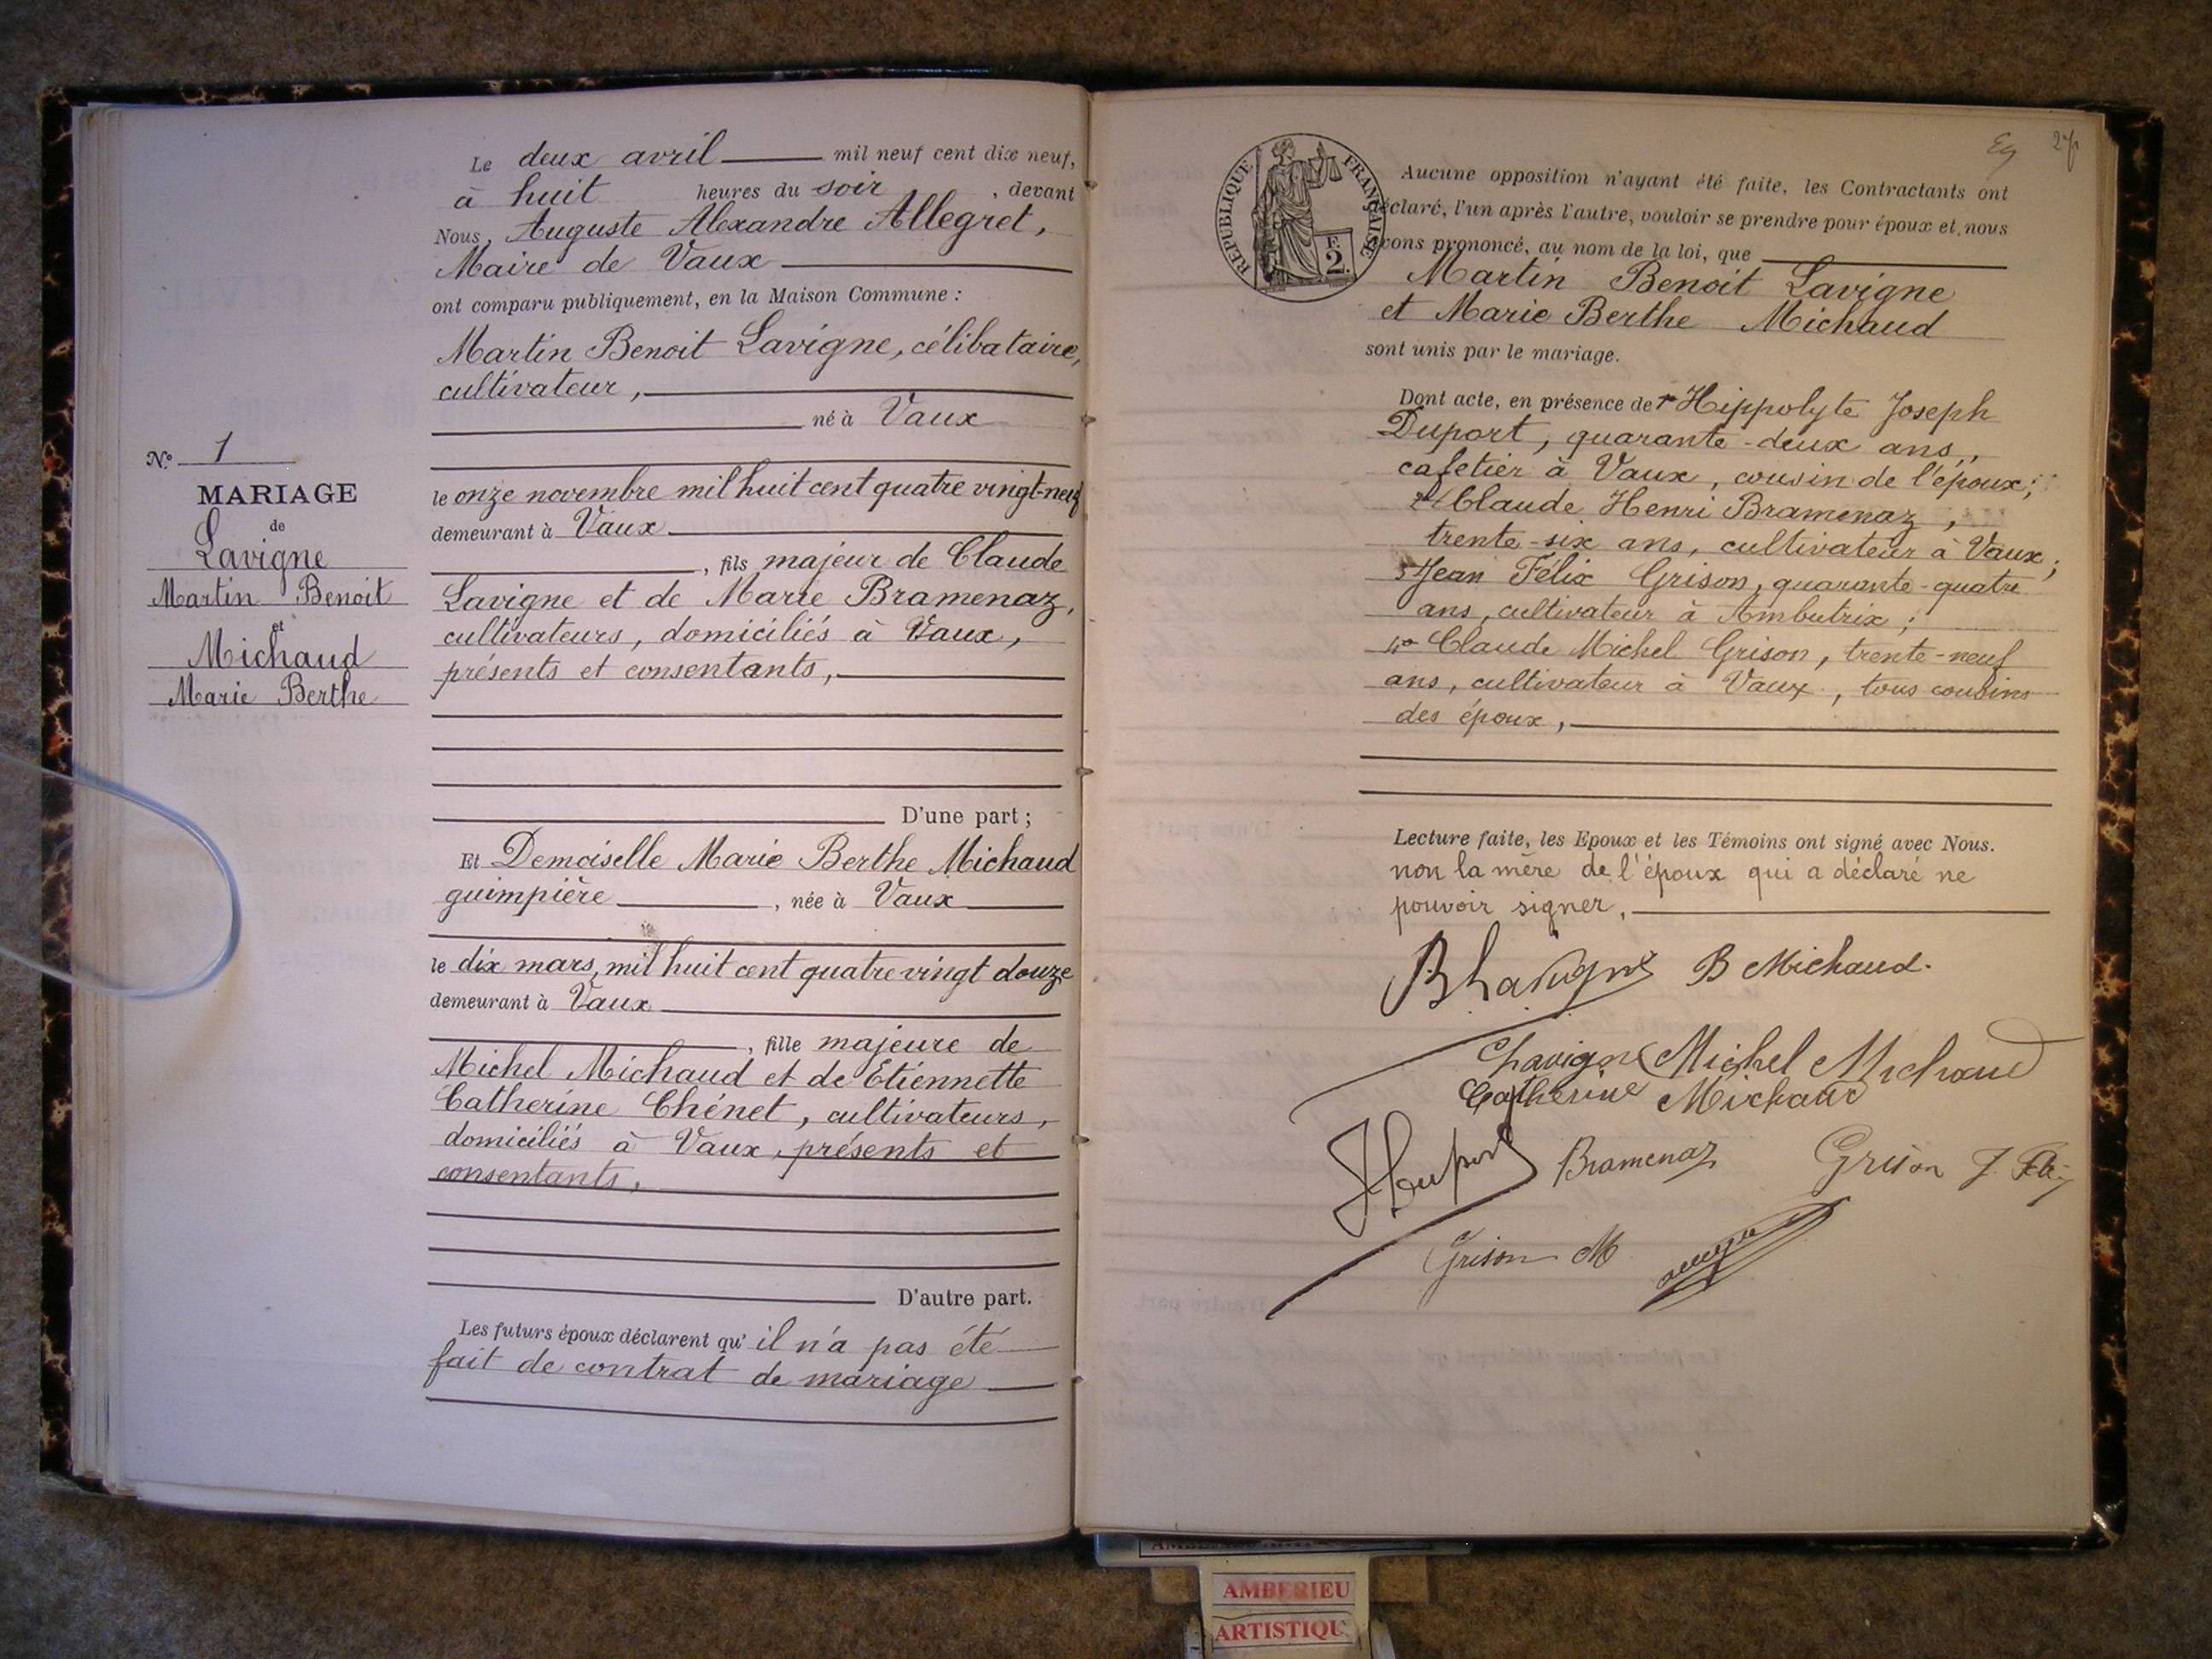 Le deux avril mil neuf cent dix neuf,
à huit heures du soir, devant
Nous, Auguste Alexandre Allegret,
Maire de Vaux
ont comparu publiquement, en la Maison Commune :
Martin Benoit Lavigne, célibataire,
cultivateur,
né à Vaux
le onze novembre mil huit cent quatre vingt-neuf
demeurant à Vaux
, fils majeur de Claude
Lavigne et de Marie Bramenaz,
cultivateurs, domiciliés à Vaux,
présents et consentants,
D'une part ;
Et Demoiselle Marie Berthe Michaud
guimpière, née à Vaux
le dix mars, mil huit cent quatre vingt douze
demeurant à Vaux
, fille majeure de
Michel Michaud et de Etiennette
Catherine Chénet, cultivateurs,
domiciliés à Vaux, présents et
consentants,
D'autre part.
Les futurs époux déclarent qu' il n'a pas été
fait de contrat de mariage
N.º 1
MARIAGE
de
Lavigne
Martin Benoit
et
Michaud
Marie Berthe
27
RÉPUBLIQUE FRANÇAISE
F.
2.
Aucune opposition n'ayant été faite, les Contractants ont
éclaré, l'un après l'autre, vouloir se prendre pour époux et nous
vons prononcé, au nom de la loi, que
Martin Benoit Lavigne
et Marie Berthe Michaud
sont unis par le mariage.
Dont acte, en présence de 1º Hippolyte Joseph
Duport, quarante-deux ans,
cafetier à Vaux, cousin de l'époux;
2º Claude Henri Bramenaz,
trente-six ans, cultivateur à Vaux;
3º Jean Félix Grison, quarante-quatre
ans, cultivateur à Ambutrix;
4º Claude Michel Grison, trente-neuf
ans, cultivateur à Vaux, tous cousins
des époux,
Lecture faite, les Epoux et les Témoins ont signé avec Nous.
non la mère de l'époux qui a déclaré ne
pouvoir signer,
B Lavigne B Michaud.
C Lavigne Michel Michaud
Catherine Michaud
H Duport Bramenaz Grison J. Félix
Grison M
AMBERIEU
ARTISTIQU